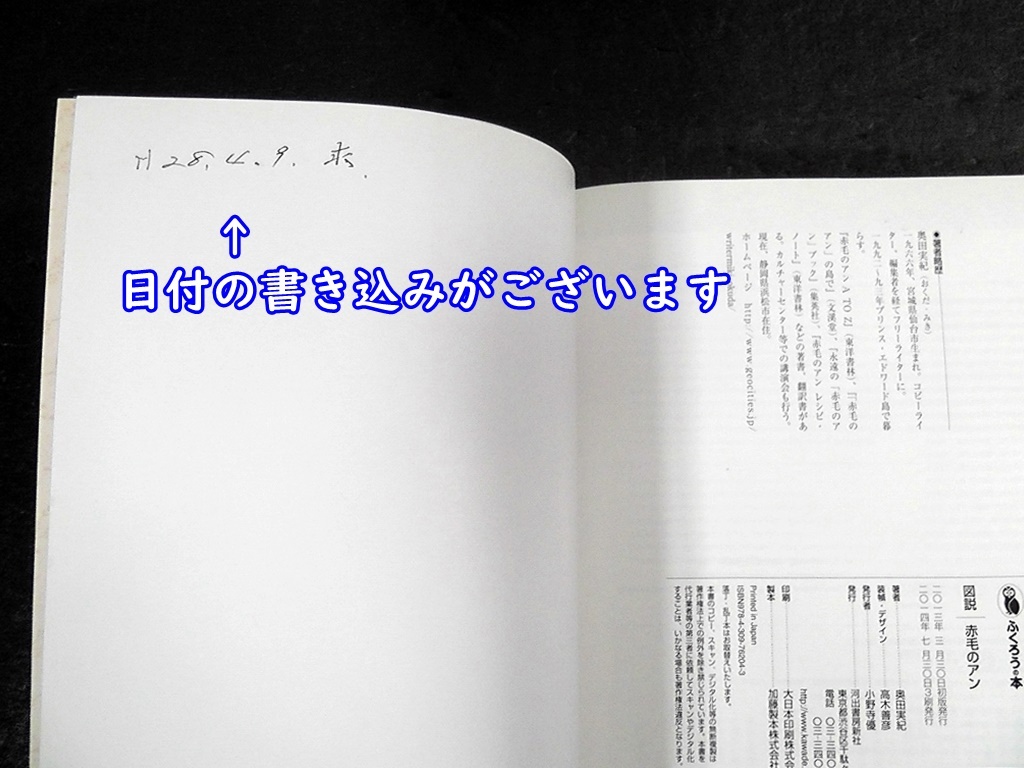 H28.4.9.
↑
日付の書き込みがございます
●著者略歴
奥田実紀（おくだ・みき）
一九六六年、宮城県仙台市生まれ。コピーライ
ター、編集者を経てフリーライターに。
一九九二〜九三年プリンス・エドワード島で暮
らす。
『赤毛のアン A TO Z』（東洋書林）、『赤毛の
アン』の島で』（文渓堂）、『永遠の『赤毛のア
ン』ブック』（集英社）、『赤毛のアン レシピ・
ノート』（東洋書林）などの著書、翻訳書があ
る。カルチャーセンター等での講演会も行う。
現在、静岡県浜松市在住。
ホームページ http://www.geocities.jp/
writermikiokuda/
ふくろうの本
図説 赤毛のアン
二〇一三年 三月三〇日初版発行
二〇一四年 七月三〇日3刷発行
著者 奥田実紀
装幀・デザイン 高木善彦
発行者 小野寺優
発行 河出書房新社
東京都渋谷区千駄
電話 〇三-三四〇
〇三-三四〇
http://www.kawade.
印刷 大日本印刷株式会
製本 加藤製本株式会社
Printed in Japan
ISBN978-4-309-76204-3
落丁・乱丁本はお取替えいたします。
本書のコピー、スキャン、デジタル化等の無断複製は
著作権法上での例外を除き禁じられています。本書を
代行業者等の第三者に依頼してスキャンやデジタル化
することは、いかなる場合も著作権法違反となります。